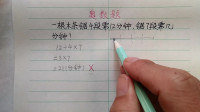 奥数题
一根木条锯4段需12分钟,锯7段需几
分钟?
12÷4×7
=3×7
=21(分钟) ×